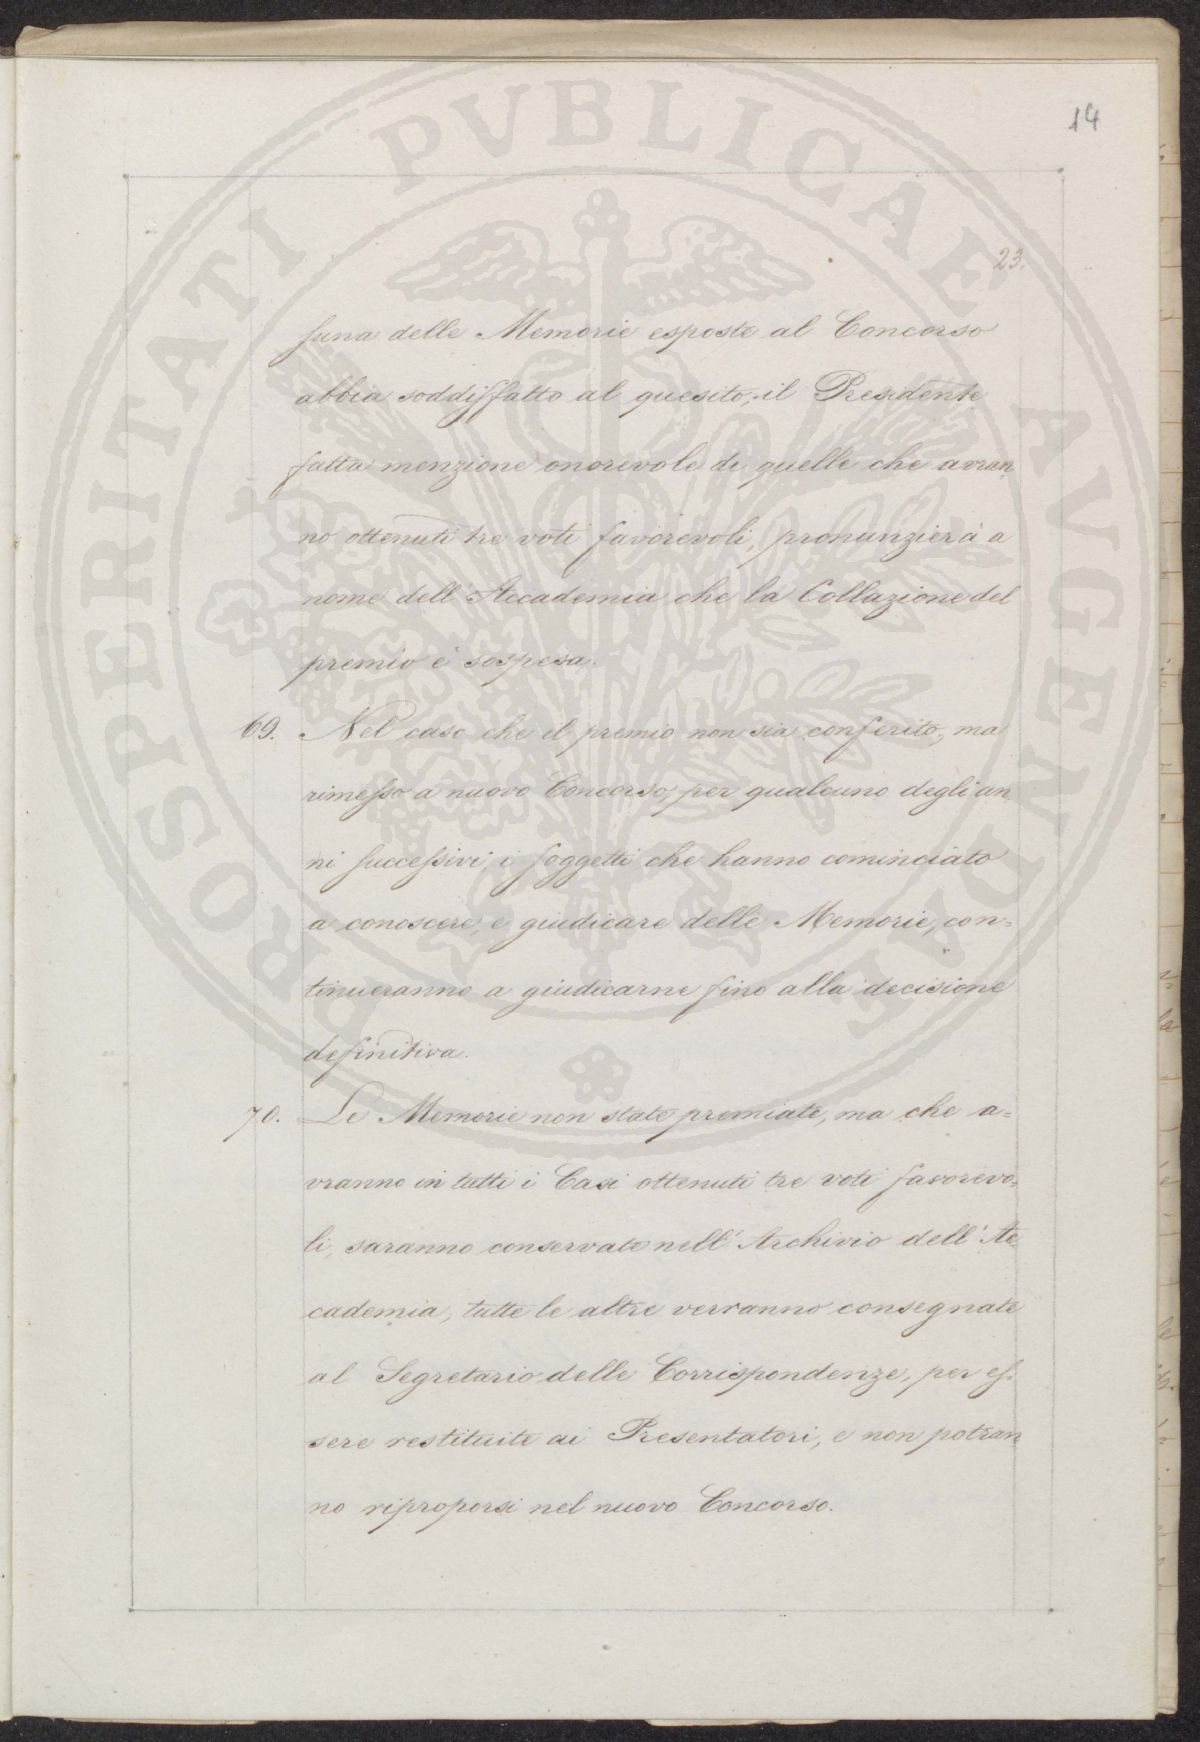 14
PROSPERITATI PVBLICAE AVGENDAE
23.
suna delle Memorie esposte al Concorso
abbia soddisfatto al quesito, il Presidente
fatta menzione onorevole di quelle che avran
no ottenuti tre voti favorevoli, pronunzierà a
nome dell' Accademia che la Collazione del
premio è sospesa.
69. Nel caso che il premio non sia conferito, ma
rimesso a nuovo Concorso, per qualcuno degli an
ni successivi, i soggetti che hanno cominciato
a conoscere, e giudicare delle Memorie, con=
tinueranno a giudicarne fino alla decisione
definitiva.
70. Le Memorie non state premiate, ma che a=
vranno in tutti i Casi ottenuti tre voti favorevo=
li, saranno conservate nell' Archivio dell' Ac
cademia, tutte le altre verranno consegnate
al Segretario delle Corrispondenze, per es=
sere restituite ai Presentatori, e non potran
no riproporsi nel nuovo Concorso.